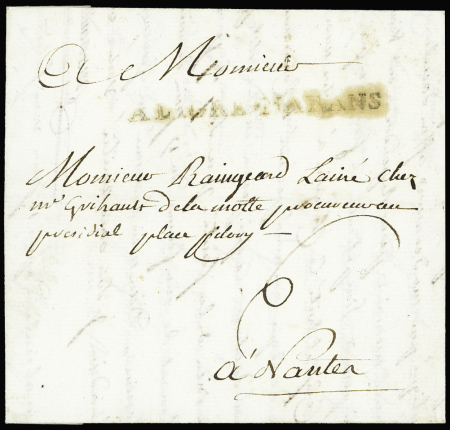 A Monsieur
Monsieur Raingeard Lainé chez
mr Grihault de la motte procureur au
présidial place
6
à Nantes